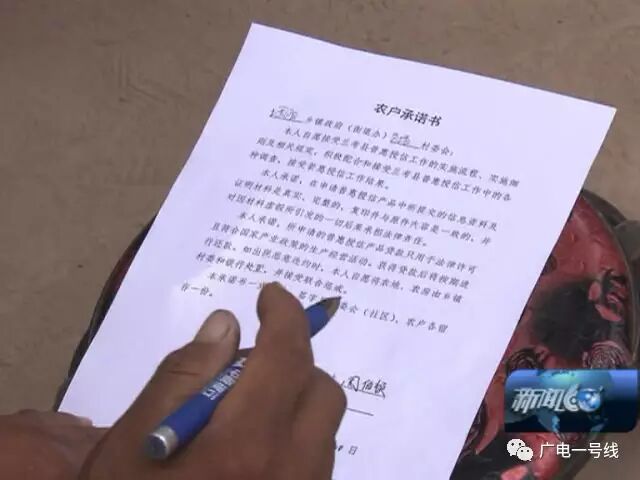 农户承诺书
乡镇政府（街道办）村委会：
本人自愿接受兰考县普惠授信工作的实施流程、实施细
则及相关规定，积极配合和接受兰考县普惠授信工作中的各
种调查，接受普惠授信工作结果。
本人承诺，在申请普惠授信产品中所提交的信息资料及
证明材料是真实、完整的，复印件与原件内容是一致的，并
对因材料虚假所引发的一切后果承担法律责任。
本人承诺，所申请的普惠授信产品贷款只用于法律许可
且符合国家产业政策的生产经营活动，获得贷款后将按期进
行还款，如出现恶意违约时，本人自愿将农地、农房由乡镇
村委和银行处置，并接受联合惩戒。
本承诺书一 签字 委会（社区）、农户各留
存一份。
日
新闻60
广电一号线